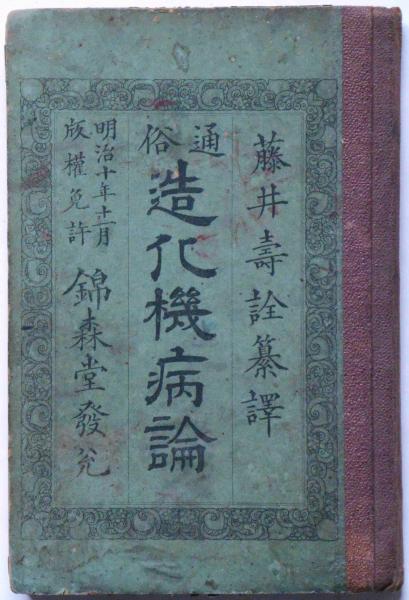 藤井壽詮纂譯
通俗
造化機病論
明治十年十二月
版權免許
錦森堂發兌